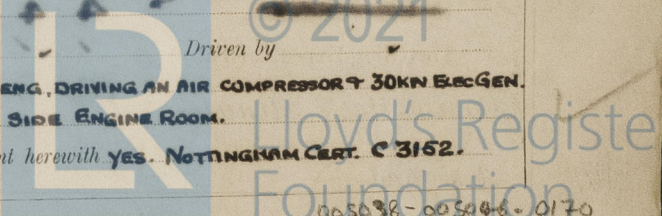 © 2021
Driven by ✓
ENG. DRIVING AN AIR COMPRESSOR & 30KW ELEC GEN.
SIDE ENGINE ROOM.
nt herewith YES. NOTTINGHAM CERT. C 3152.
LR
Lloyd's Registe
Foundation
005038-005046-0170